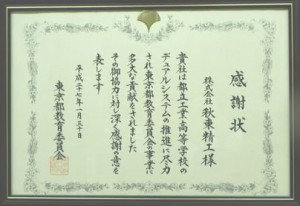 感謝状
株式会社 秋東精工 様
貴社は都立工業高等学校の
デュアルシステムの推進に尽力
され東京都教育委員会の事業に
多大な貢献をされました
その御協力に対し深く感謝の意を
表します
平成二十七年一月三十日
東京都教育委員会